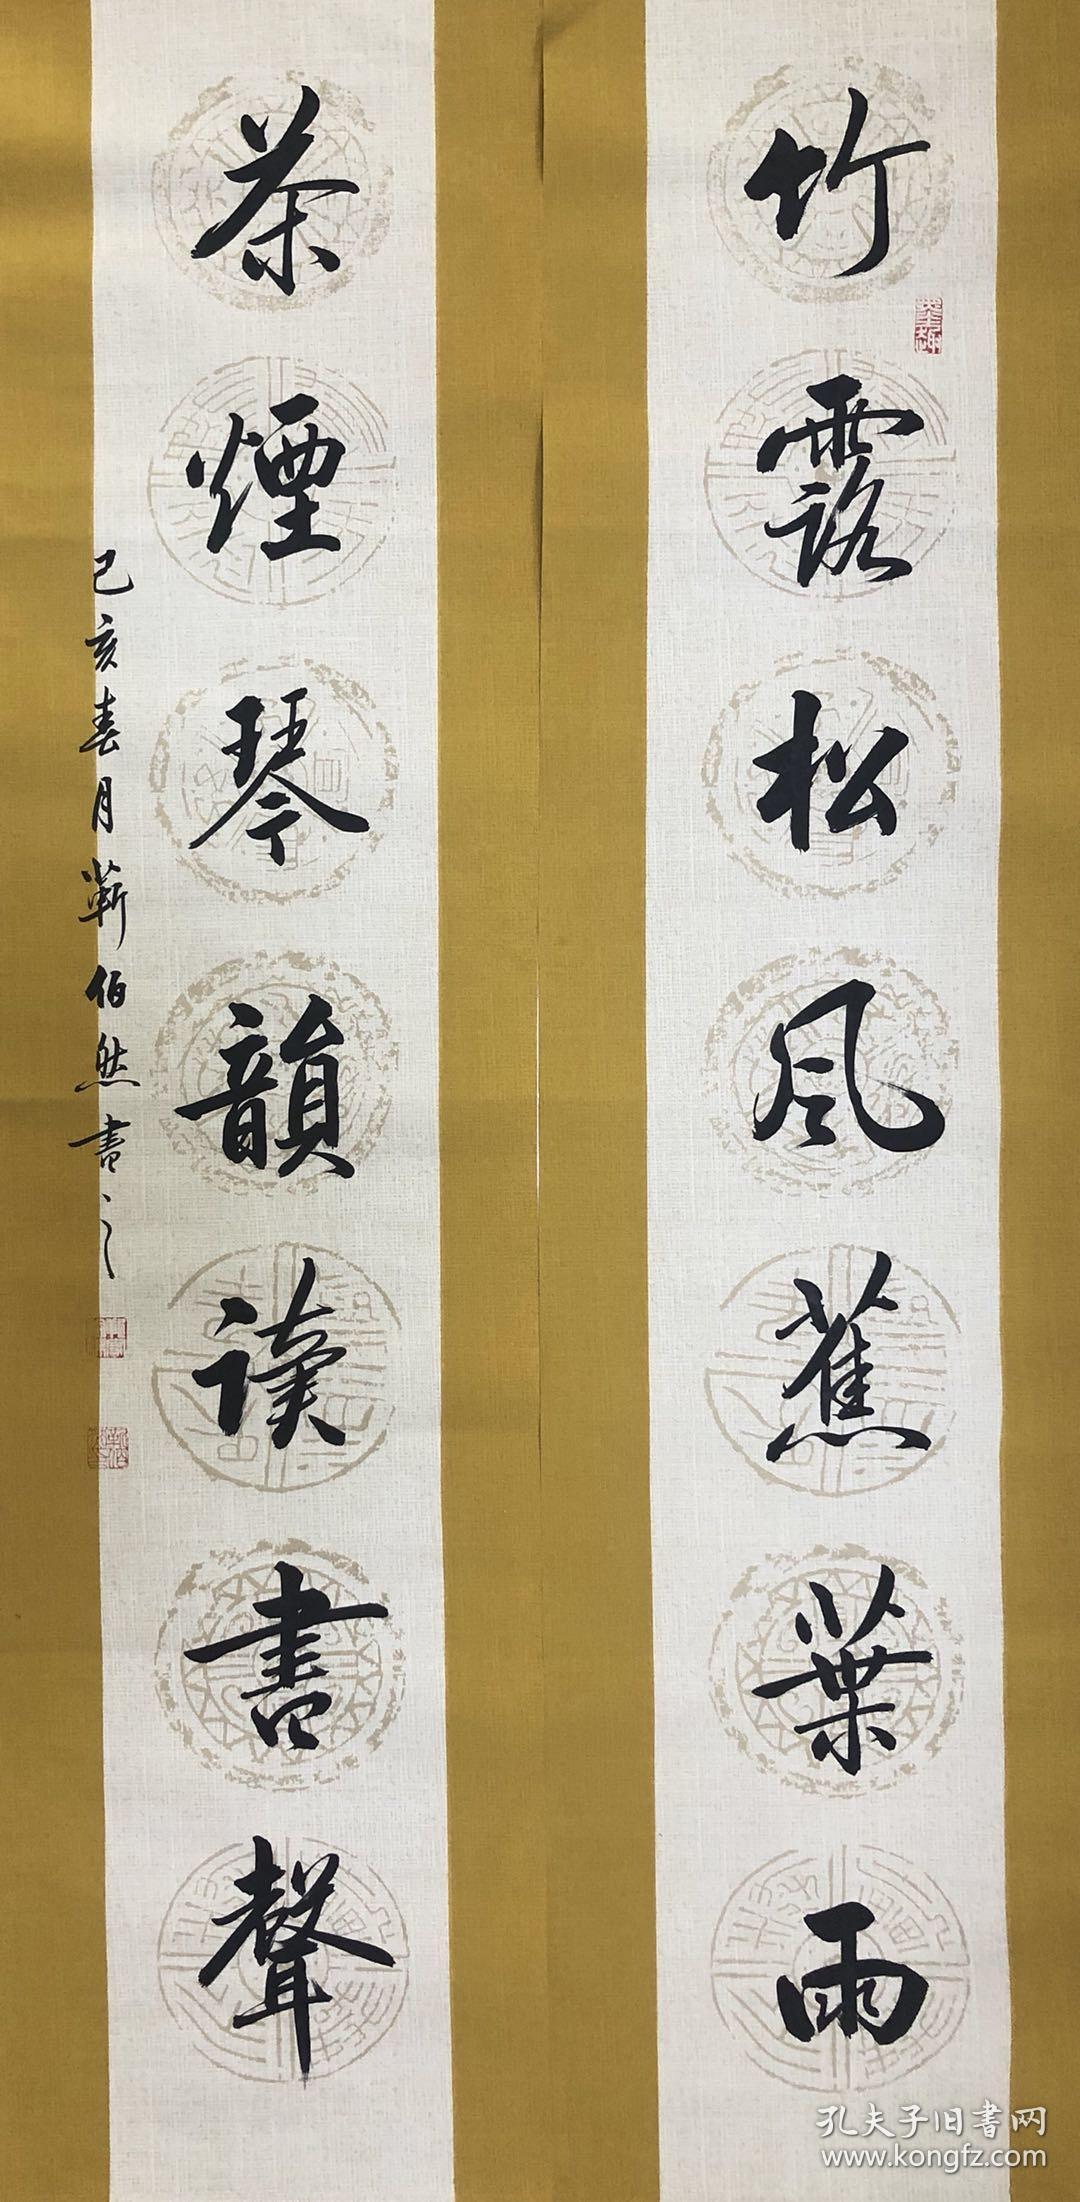 竹露松風蕉葉雨
茶煙琴韻讀書聲
己亥春月蘄伯然書之
孔夫子旧书网
www.kongfz.com